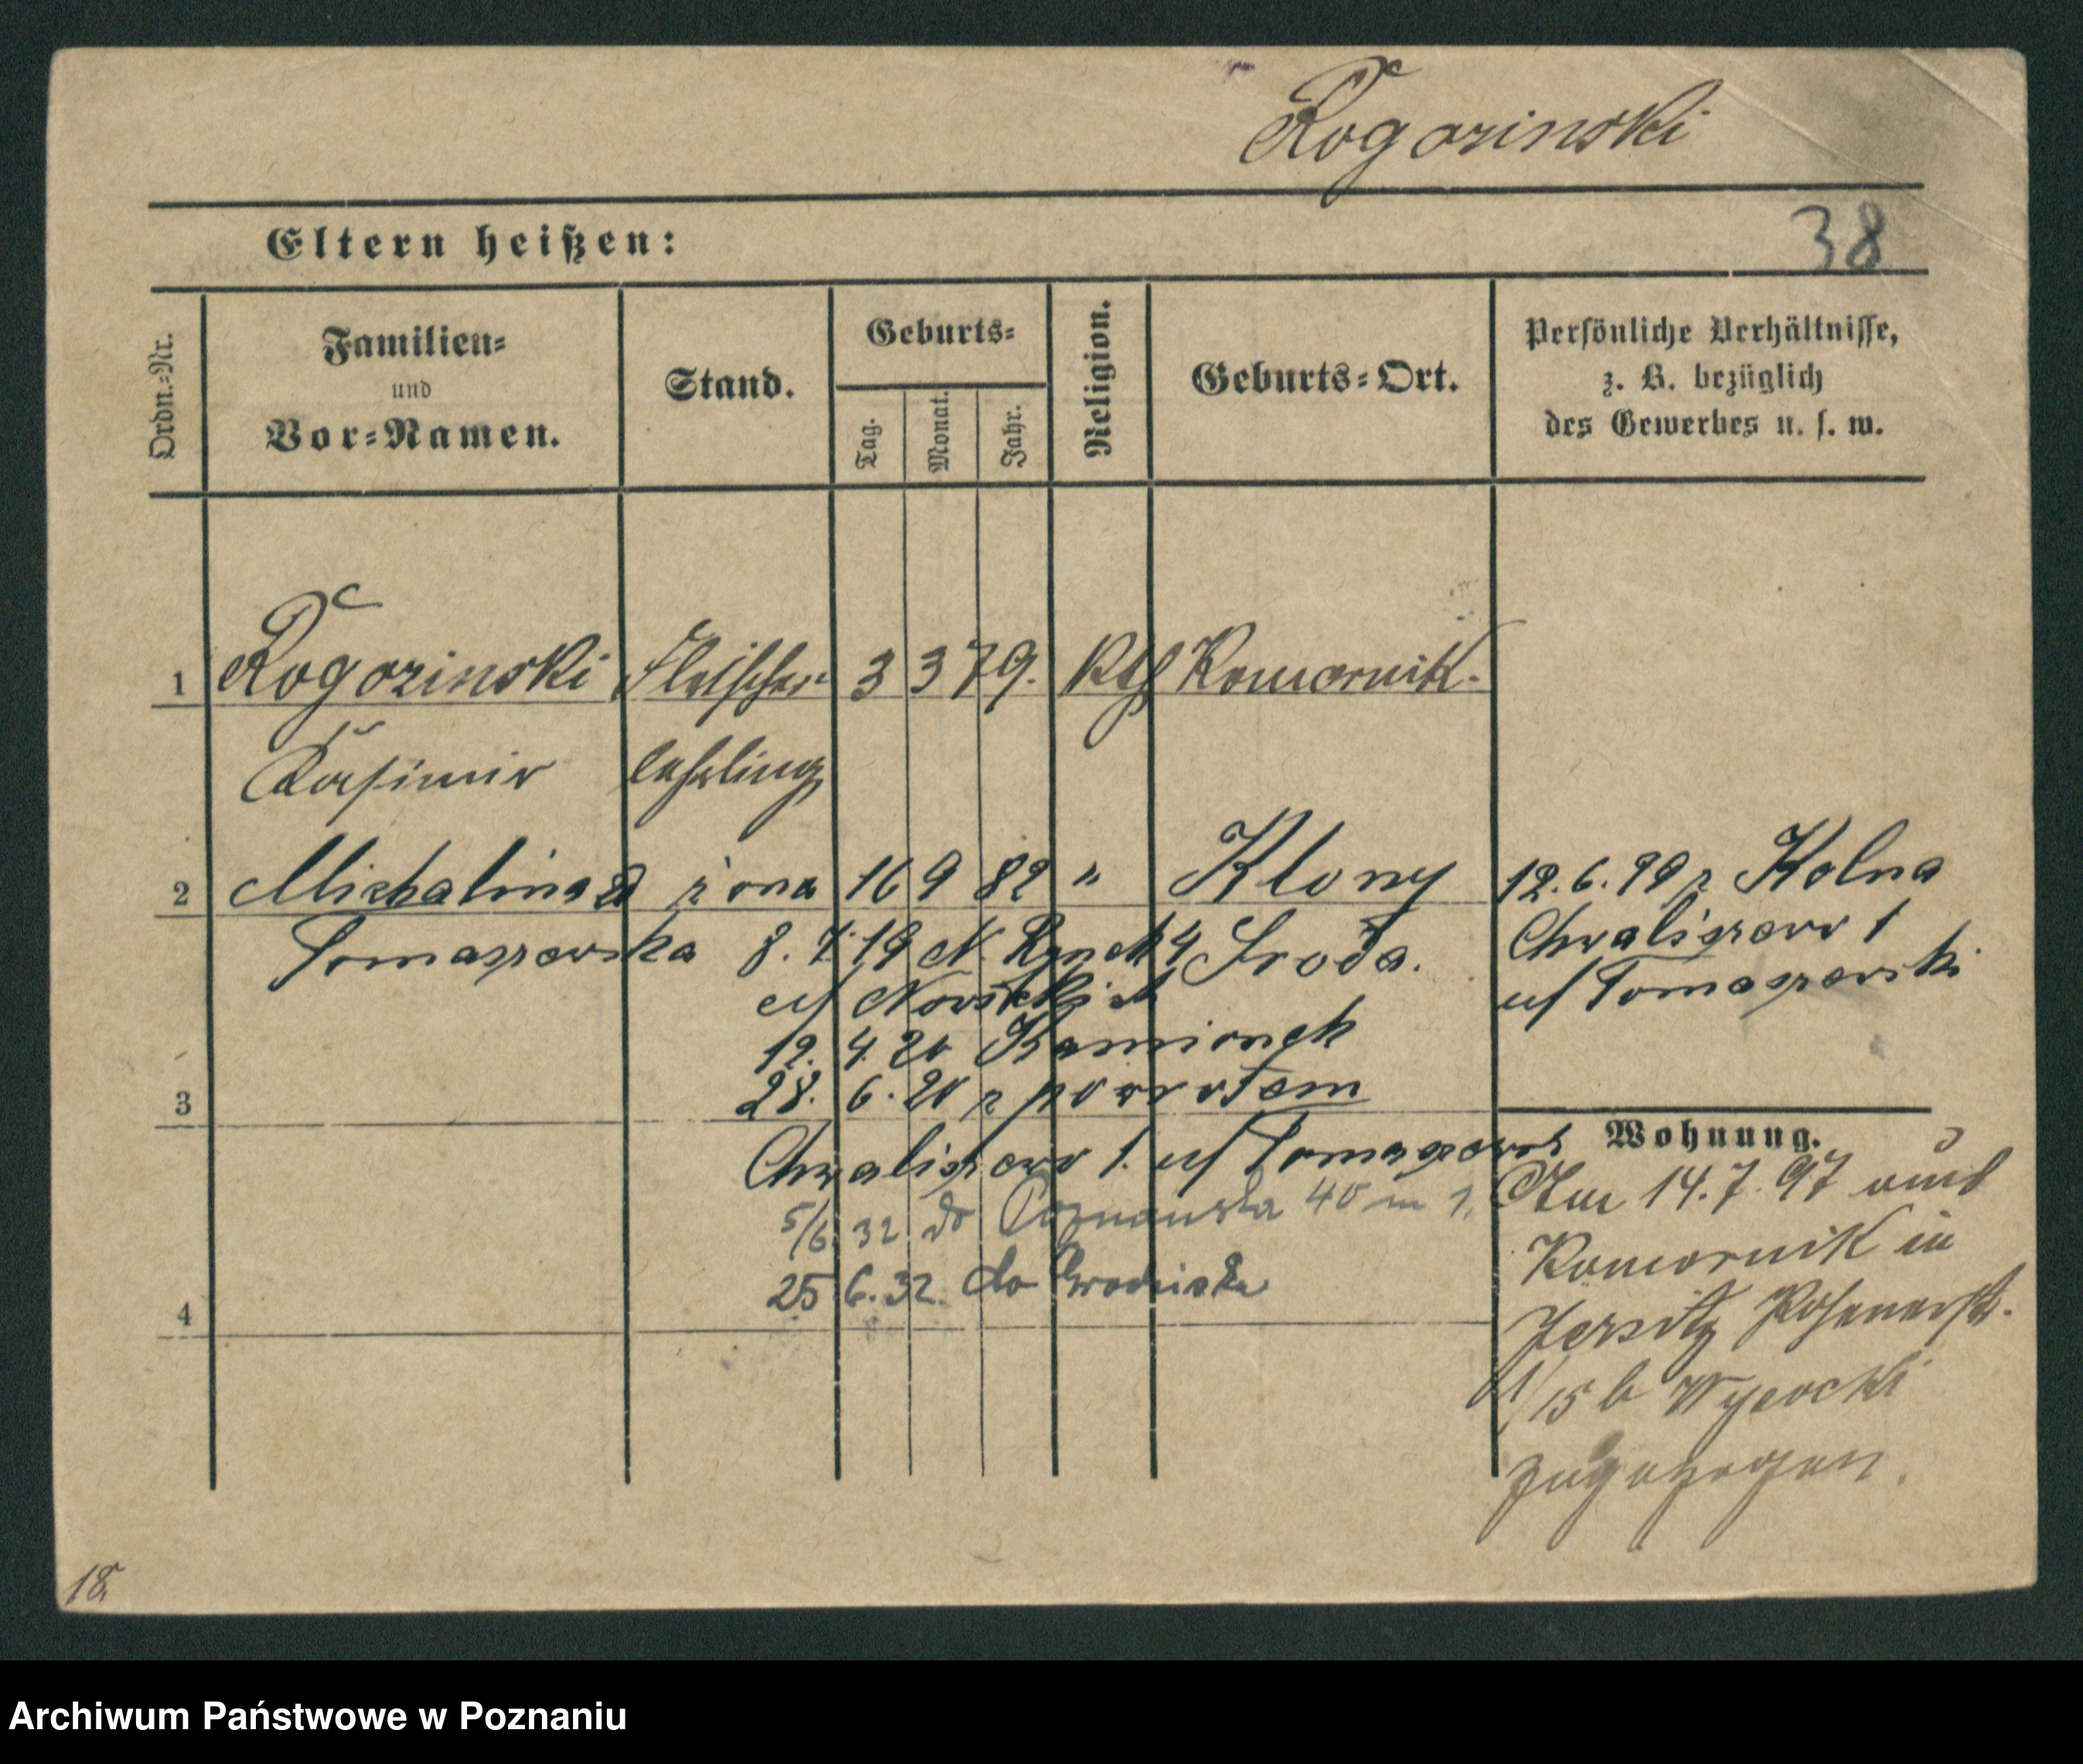 Rogozinski
38
Eltern heißen:
Ordn.-Nr.
Familien-
und
Vor-Namen.
Stand.
Geburts-
Tag.
Monat.
Jahr.
Religion.
Geburts-Ort.
Persönliche Verhältnisse,
z. B. bezüglich
des Gewerbes u. s. w.
1 Rogozinski Fleischer 3 3 79. Kth Komornik.
Kasimir lehrling
2 Michalina żona 16 9 82 " Klony
Tomaszewska 8. 7. 19 N. Rynek 4 Środa.
u/ Nowickich
12. 4. 20 Kamionek
28. 6. 20 z powrotem
Chwaliszewo 1. u/ Tomaszews
5/6 32 do Poznańska 40 m 1.
25 6. 32. do Grodziska
3
4
12. 6. 99 z Kolna
Chwaliszewo 1
u/ Tomaszewski
Wohnung.
Am 14. 7. 97 aus
Komornik in
Jersitz Posenerst.
15 b Wysocki
zugezogen.
18.
Archiwum Państwowe w Poznaniu